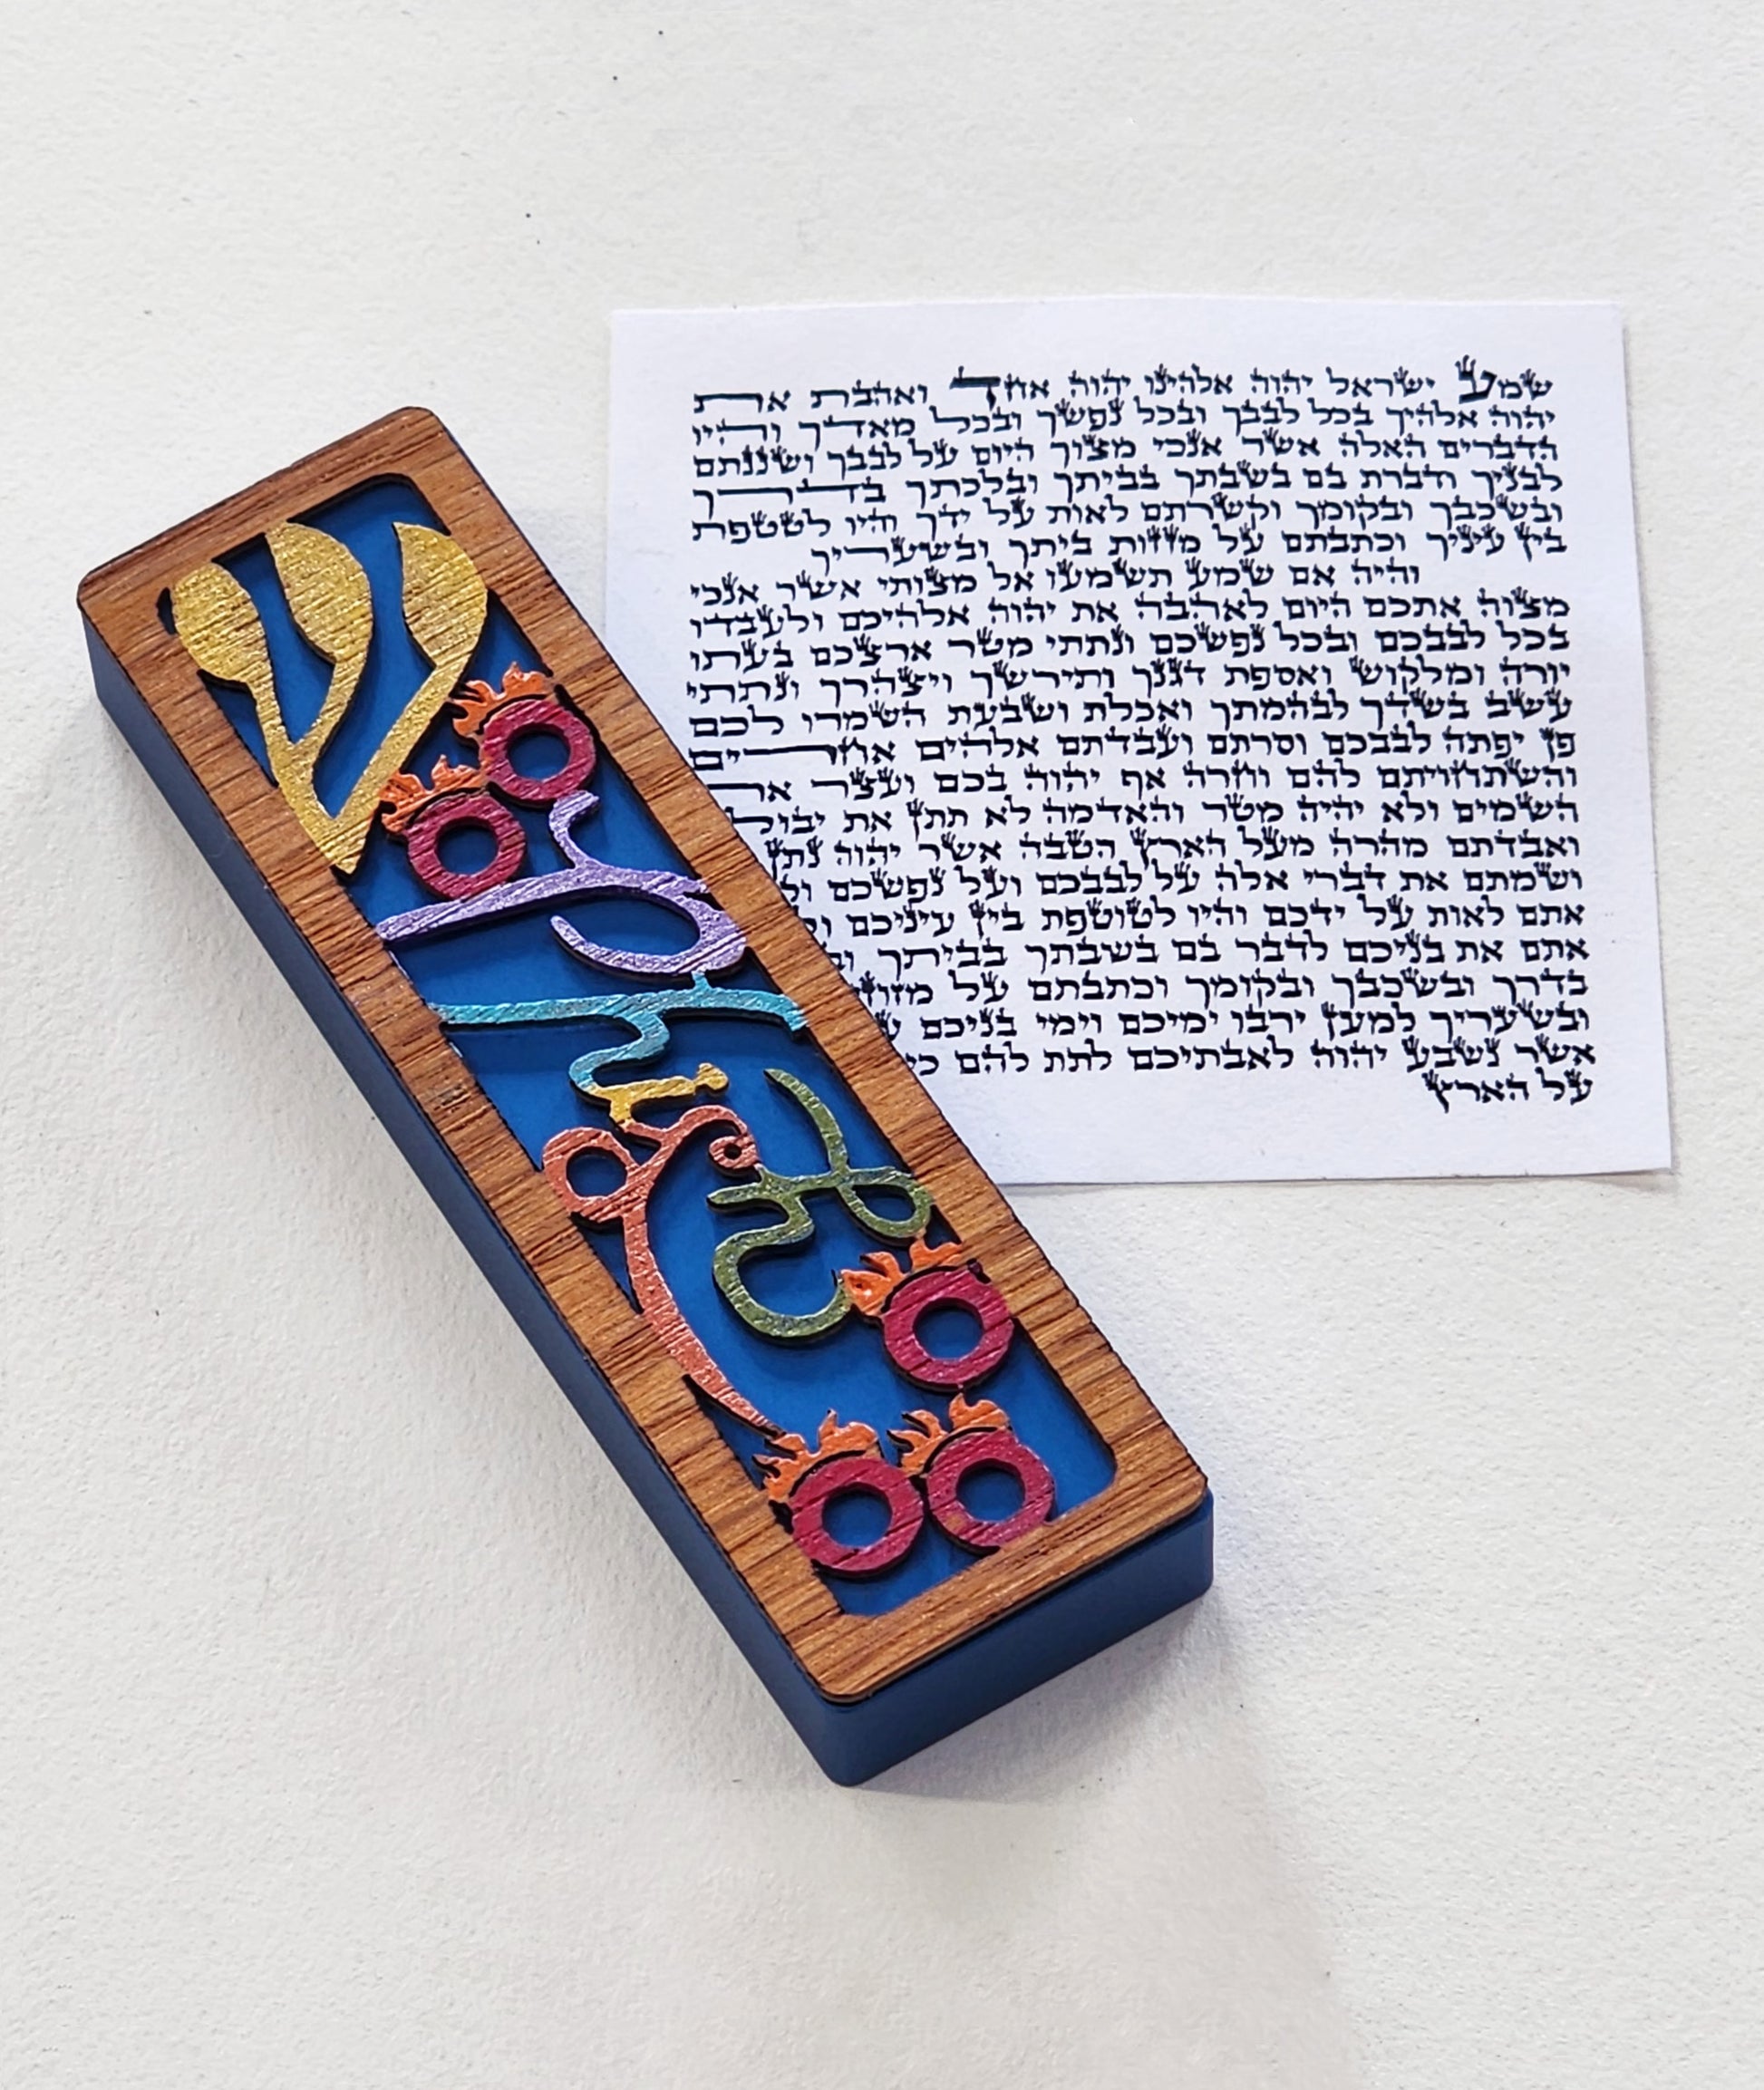 ש
שמע ישראל יהוה אלהינו יהוה אחד ואהבת את
יהוה אלהיך בכל לבבך ובכל נפשך ובכל מאדך והיו
הדברים האלה אשר אנכי מצוך היום על לבבך ושננתם
לבניך ודברת בם בשבתך בביתך ובלכתך בדרך
ובשכבך ובקומך וקשרתם לאות על ידך והיו לטטפת
בין עיניך וכתבתם על מזזות ביתך ובשעריך
והיה אם שמע תשמעו אל מצותי אשר אנכי
מצוה אתכם היום לאהבה את יהוה אלהיכם ולעבדו
בכל לבבכם ובכל נפשכם ונתתי מטר ארצכם בעתו
יורה ומלקוש ואספת דגנך ותירשך ויצהרך ונתתי
עשב בשדך לבהמתך ואכלת ושבעת השמרו לכם
פן יפתה לבבכם וסרתם ועבדתם אלהים אחרים
והשתחויתם להם וחרה אף יהוה בכם ועצר את
השמים ולא יהיה מטר והאדמה לא תתן את יבול
ואבדתם מהרה מעל הארץ הטבה אשר יהוה נתן
ושמתם את דברי אלה על לבבכם ועל נפשכם
אתם לאות על ידכם והיו לטוטפת בין עיניכם
אתם את בניכם לדבר בם בשבתך בביתך
בדרך ובשכבך ובקומך וכתבתם על
ובשעריך למען ירבו ימיכם וימי בניכם
אשר נשבע יהוה לאבתיכם לתת להם
על הארץ